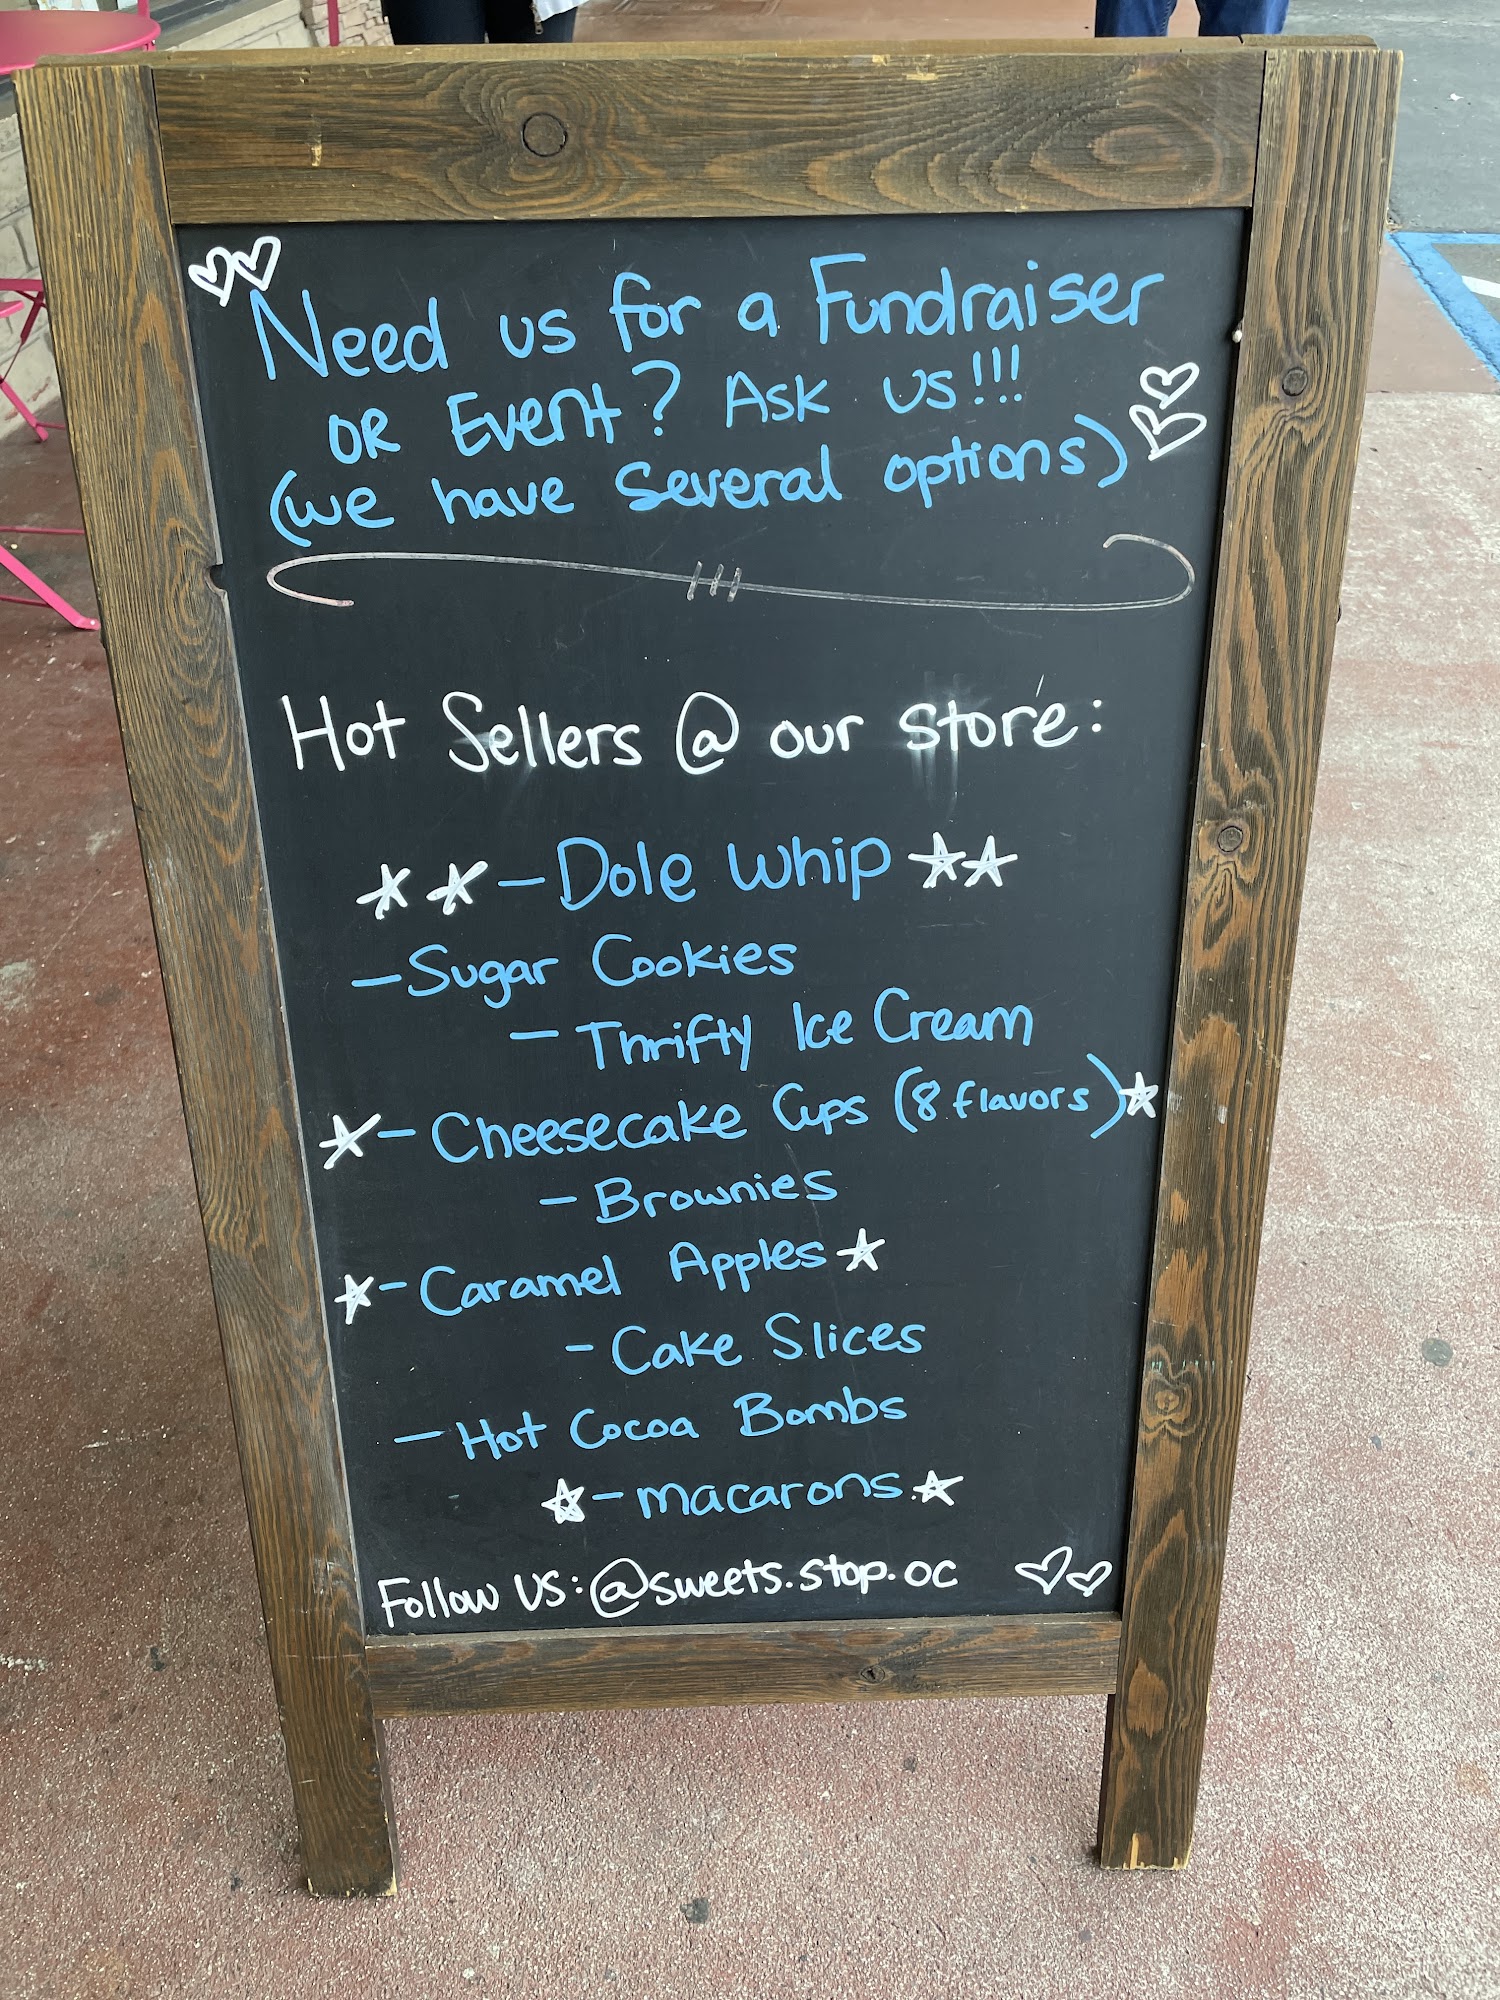 Need us for a Fundraiser
OR Event? Ask us!!!
(we have several options)
Hot Sellers @ our store:
- Dole Whip
- Sugar Cookies
- Thrifty Ice Cream
- Cheesecake Cups (8 flavors)
- Brownies
- Caramel Apples
- Cake Slices
- Hot Cocoa Bombs
- macarons.
Follow US: @sweets.stop.oc